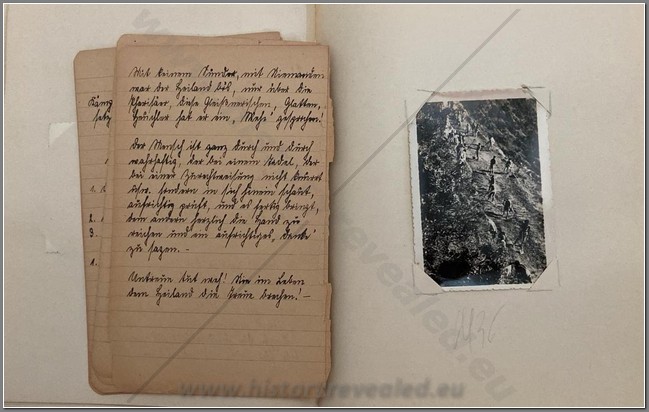 Mit keinem Sünder, mit Niemandem
war der Heiland bös, nur über die
Pharisäer, diese Gleisnerischen, Glatten,
Heuchler hat er ein „Wehe" gesprochen!
Der Mensch ist ganz durch und durch
wahrhaftig, der bei einem Tadel, der
bei einer Zurechtweisung nicht
usw. sondern in sich hinein schaut,
aufrichtig prüft, und es fertig bringt,
dem andern herzlich die Hand zu
reichen und ein aufrichtiges „danke"
zu sagen. –
Untreue tut weh! Nie im Leben
dem Heiland die Treue brechen! –
1.
2.
3.
1.
www.historyrevealed.eu